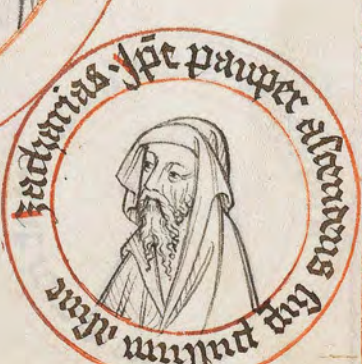 zacharias · Ip̄e pauper ascendens sup pullum asine